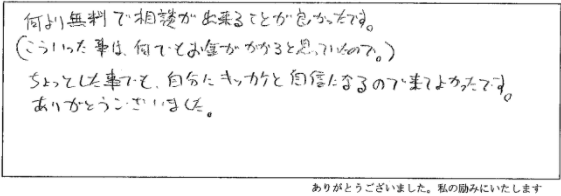 何より無料で相談が出来ることが良かったです。
(こういった事は、何でもお金がかかると思っていたので。)
ちょっとした事でも、自分にキッカケと自信になるので来てよかったです。
ありがとうございました。
ありがとうございました。私の励みにいたします